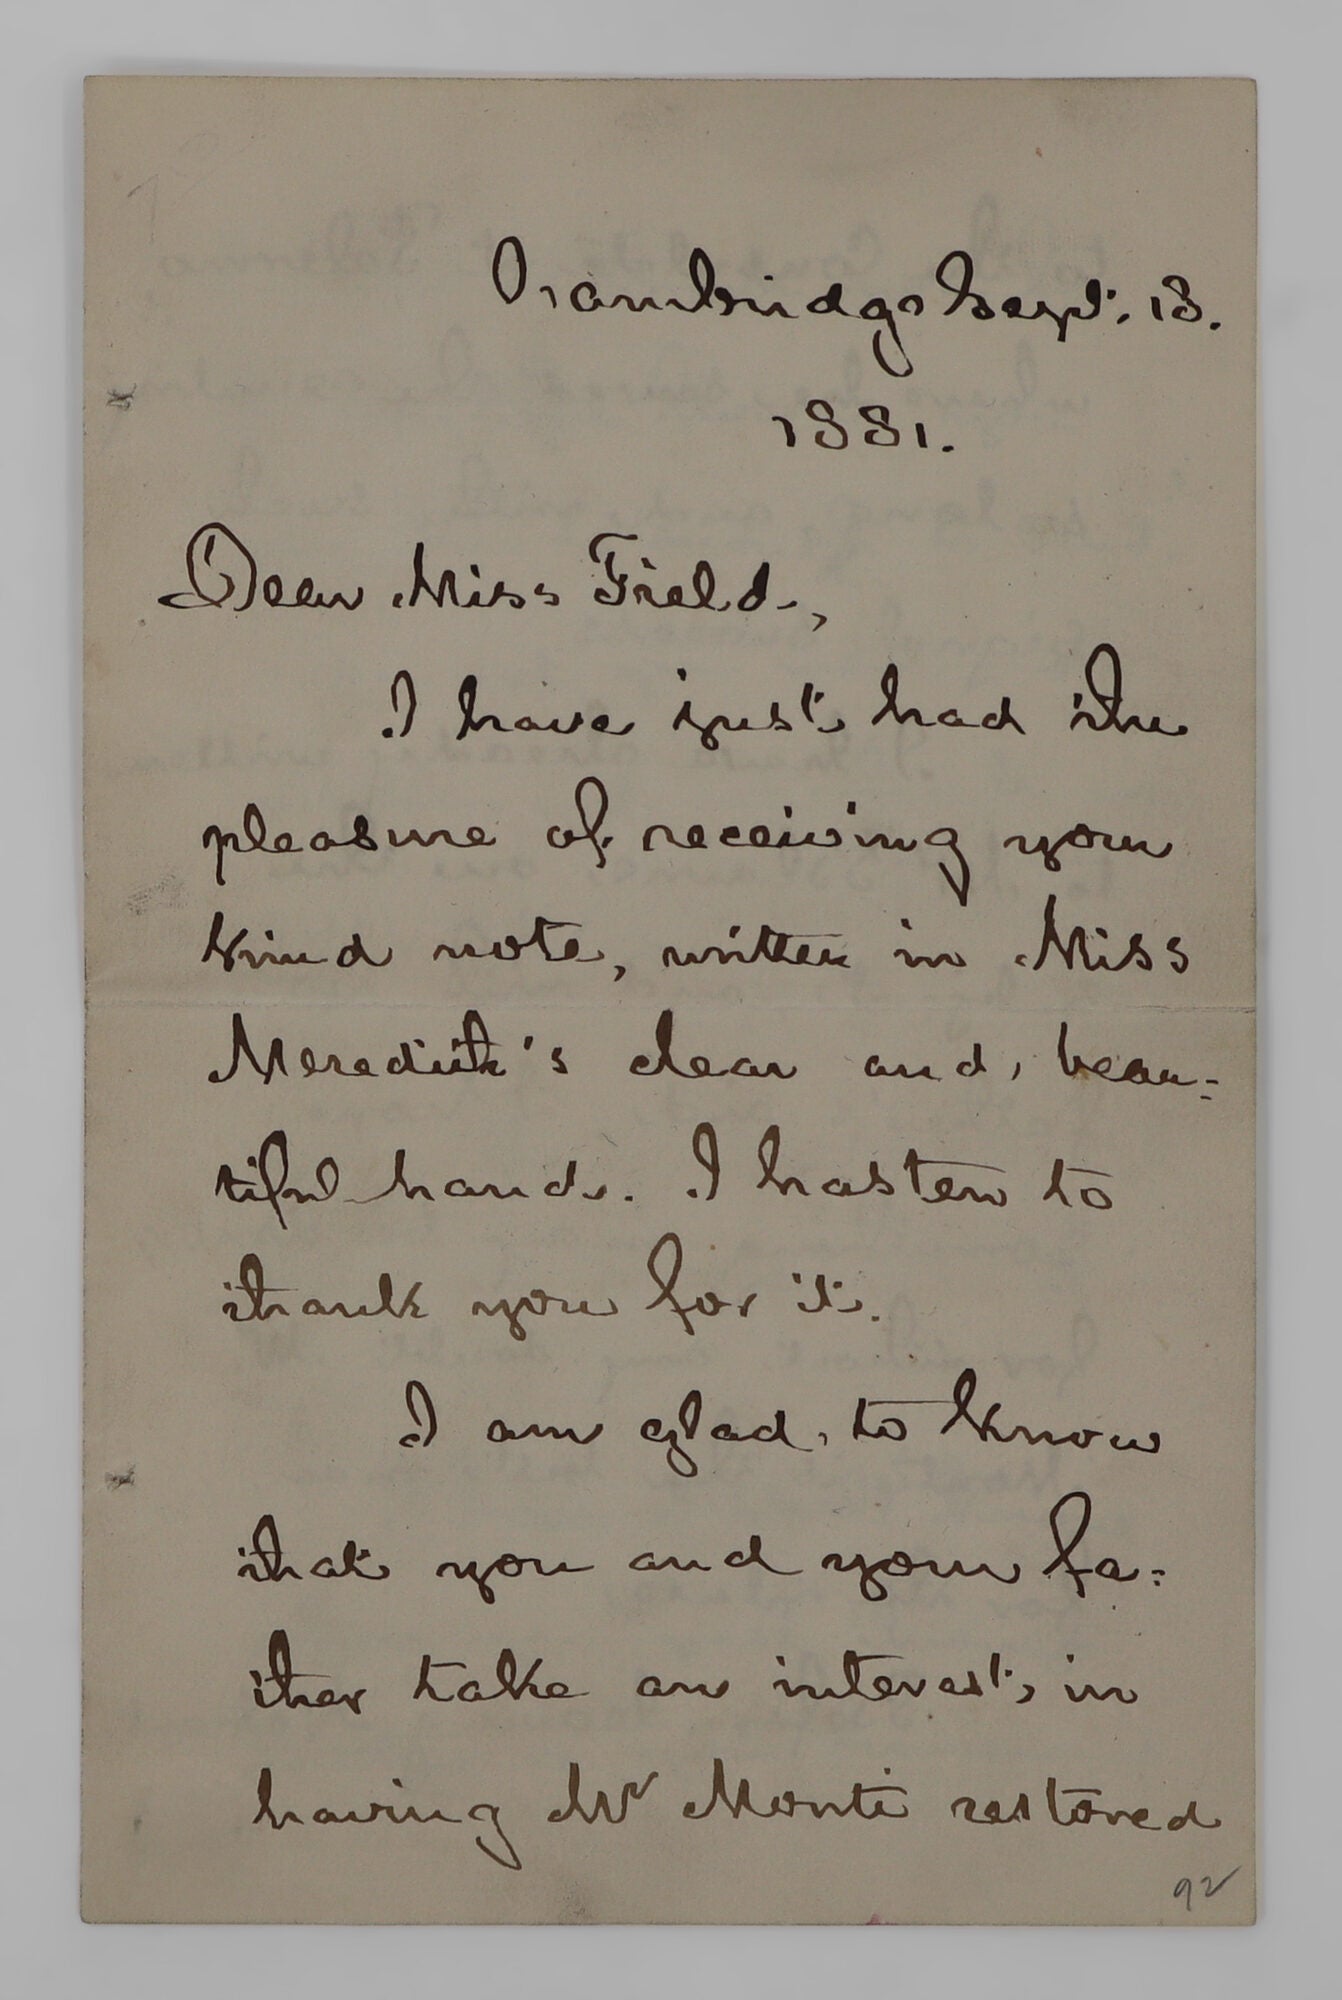 Cambridge Sept. 13.
1881.
Dear Miss Field,
I have just had the
pleasure of receiving your
kind note, written in Miss
Meredith's clear and beau=
tiful hand. I hasten to
thank you for it.
I am glad to know
that you and your fa=
ther take an interest in
having Mr Monti restored
92